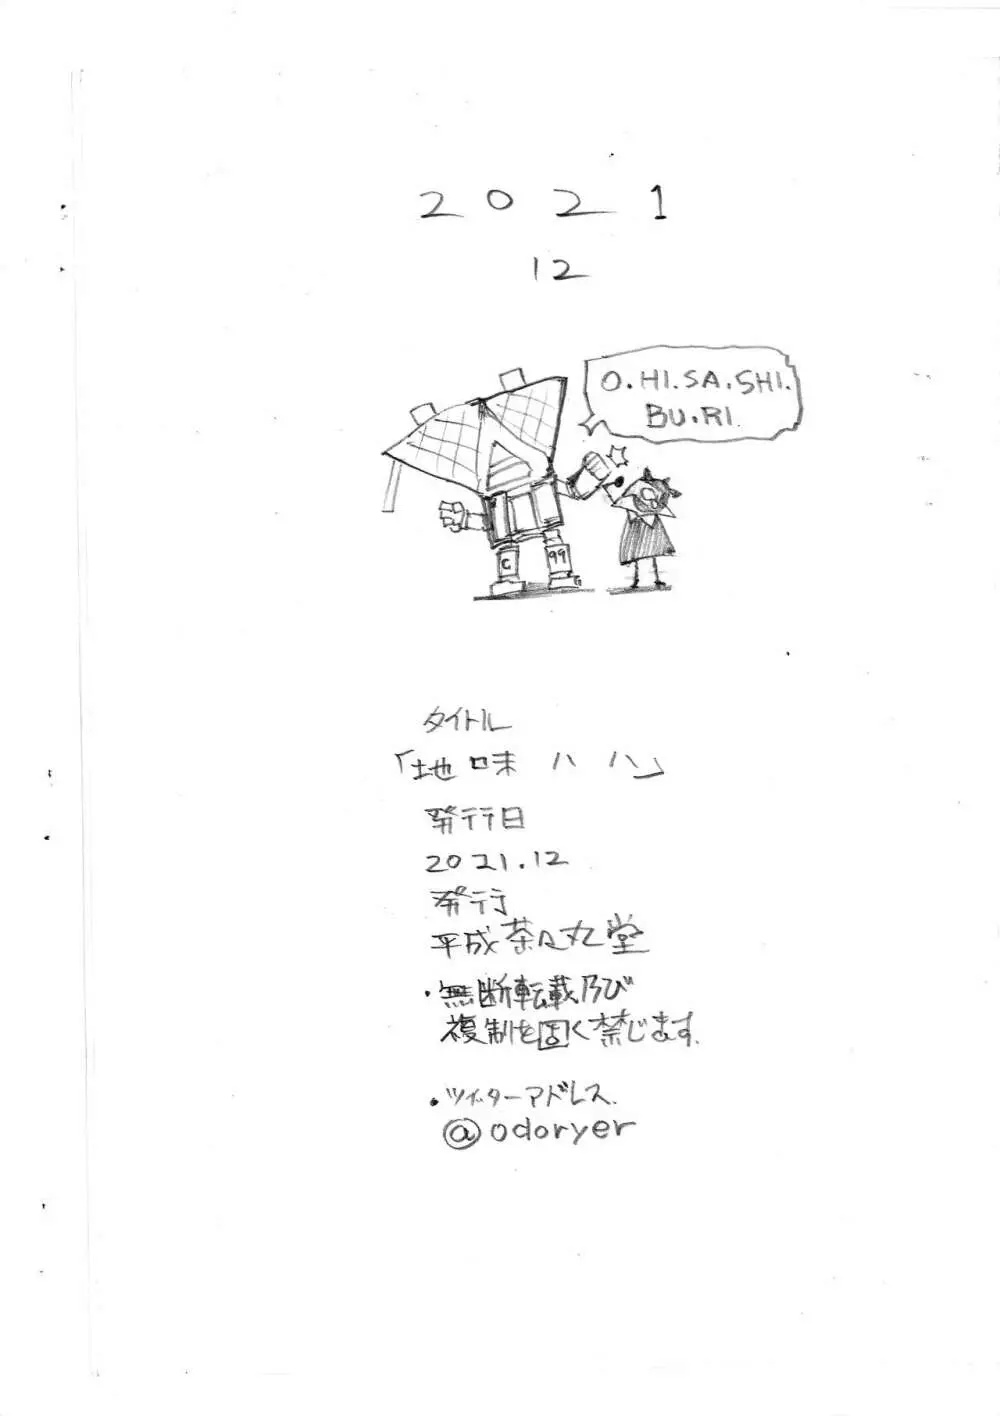 2021
12
O.HI.SA.SHI.
BU.RI.
C 99
タイトル
「地味ハハ」
発行日
2021.12
発行
平成茶々丸堂
・無断転載及び
複制を固く禁じます.
・ツイッターアドレス.
@odoryer